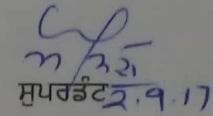 ਸੁਪਰਡੰਟ 2.9.17